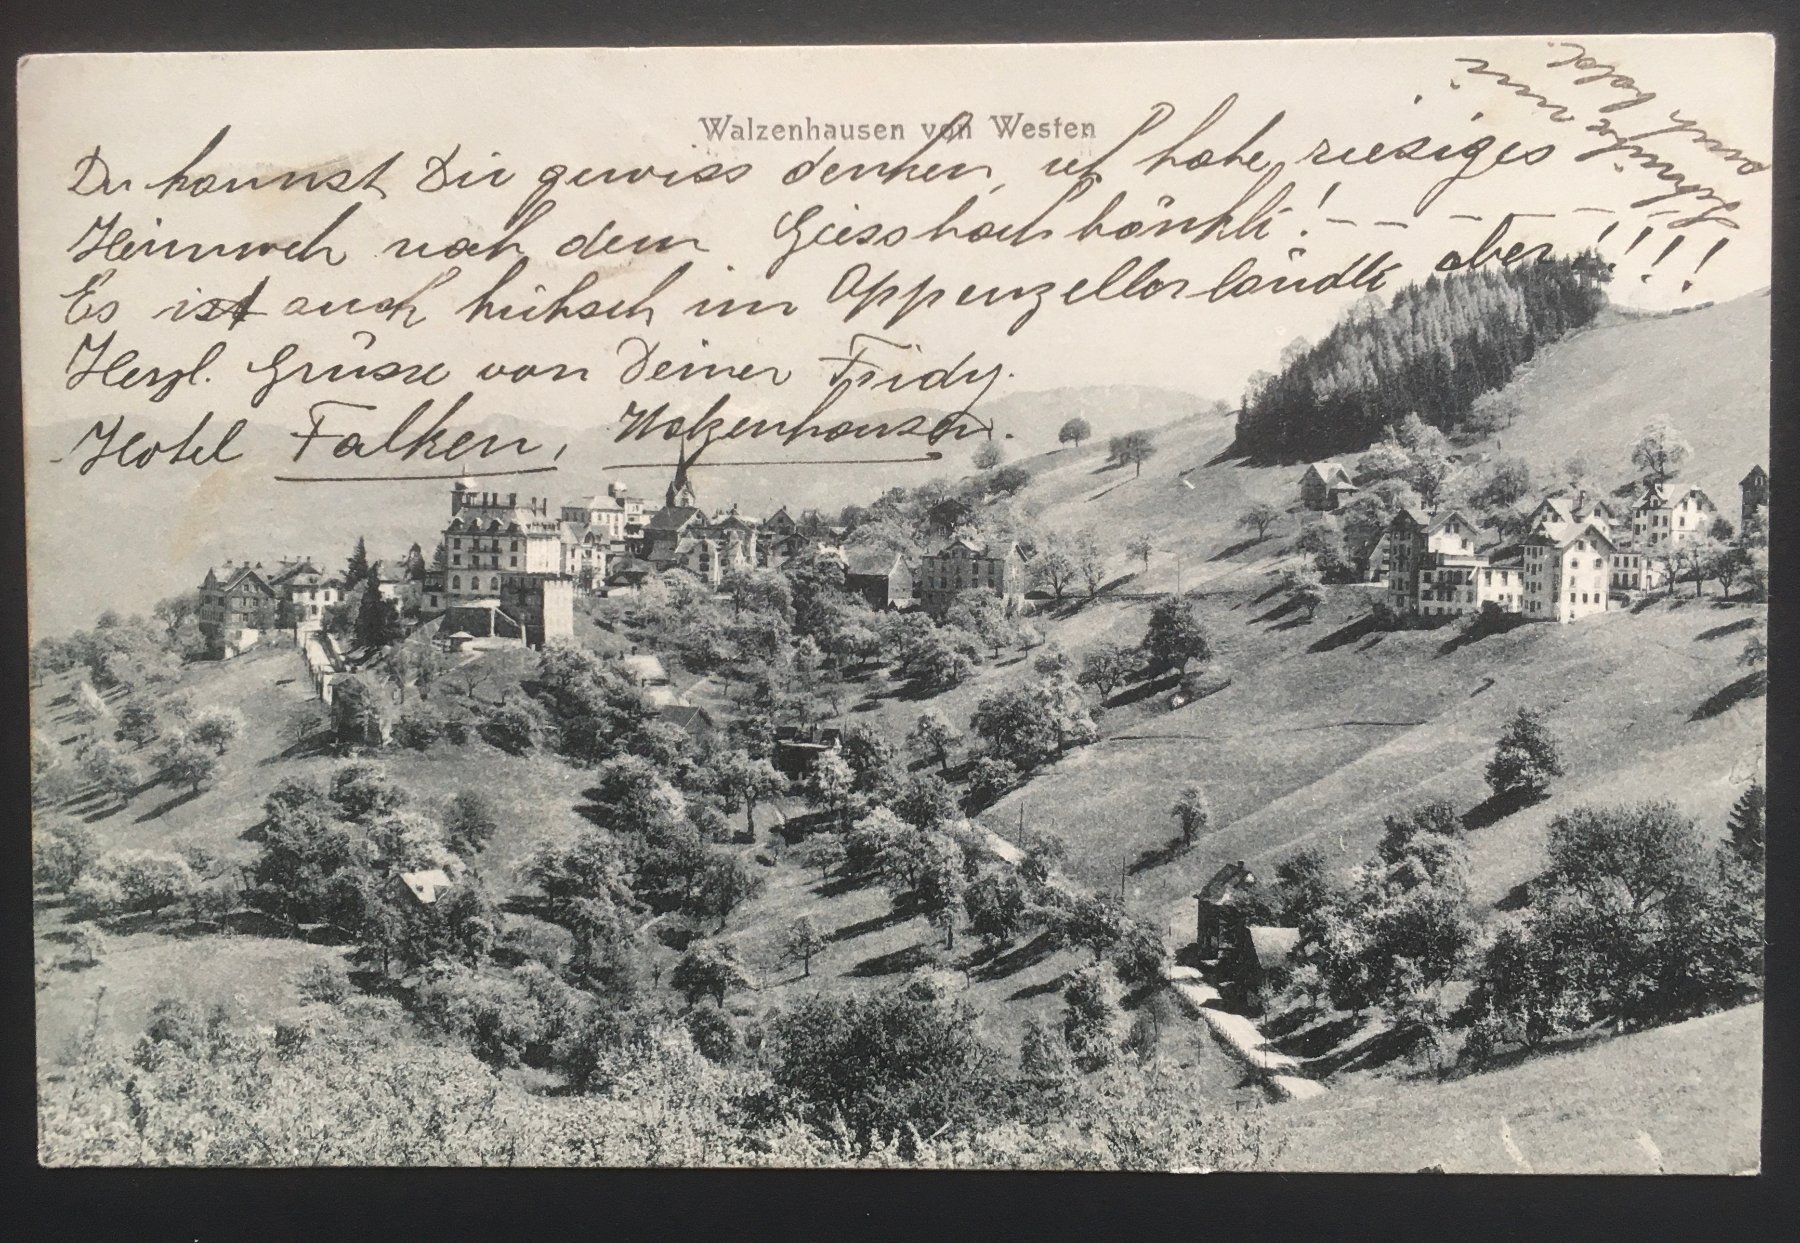 Walzenhausen von Westen
Du kannst Dir gewiss denken, ich habe riesiges
Heimweh nach dem Giessbachbänkli! – – – – – –
Es ist auch hübsch im Appenzellerländli aber !!!!
Herzl. Grüsse von Deiner Fridy.
Hotel Falken, Walzenhausen.
Schreibe mir
auch bald.